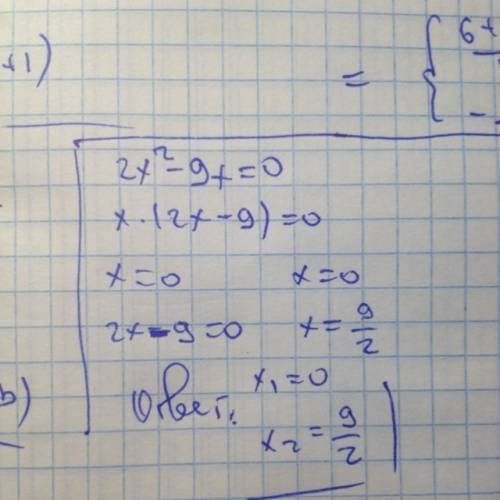 +1)
= { 6x
2x² - 9x = 0
x · (2x - 9) = 0
x = 0 x = 0
2x - 9 = 0 x = 9/2
Ответ: x₁ = 0
x₂ = 9/2